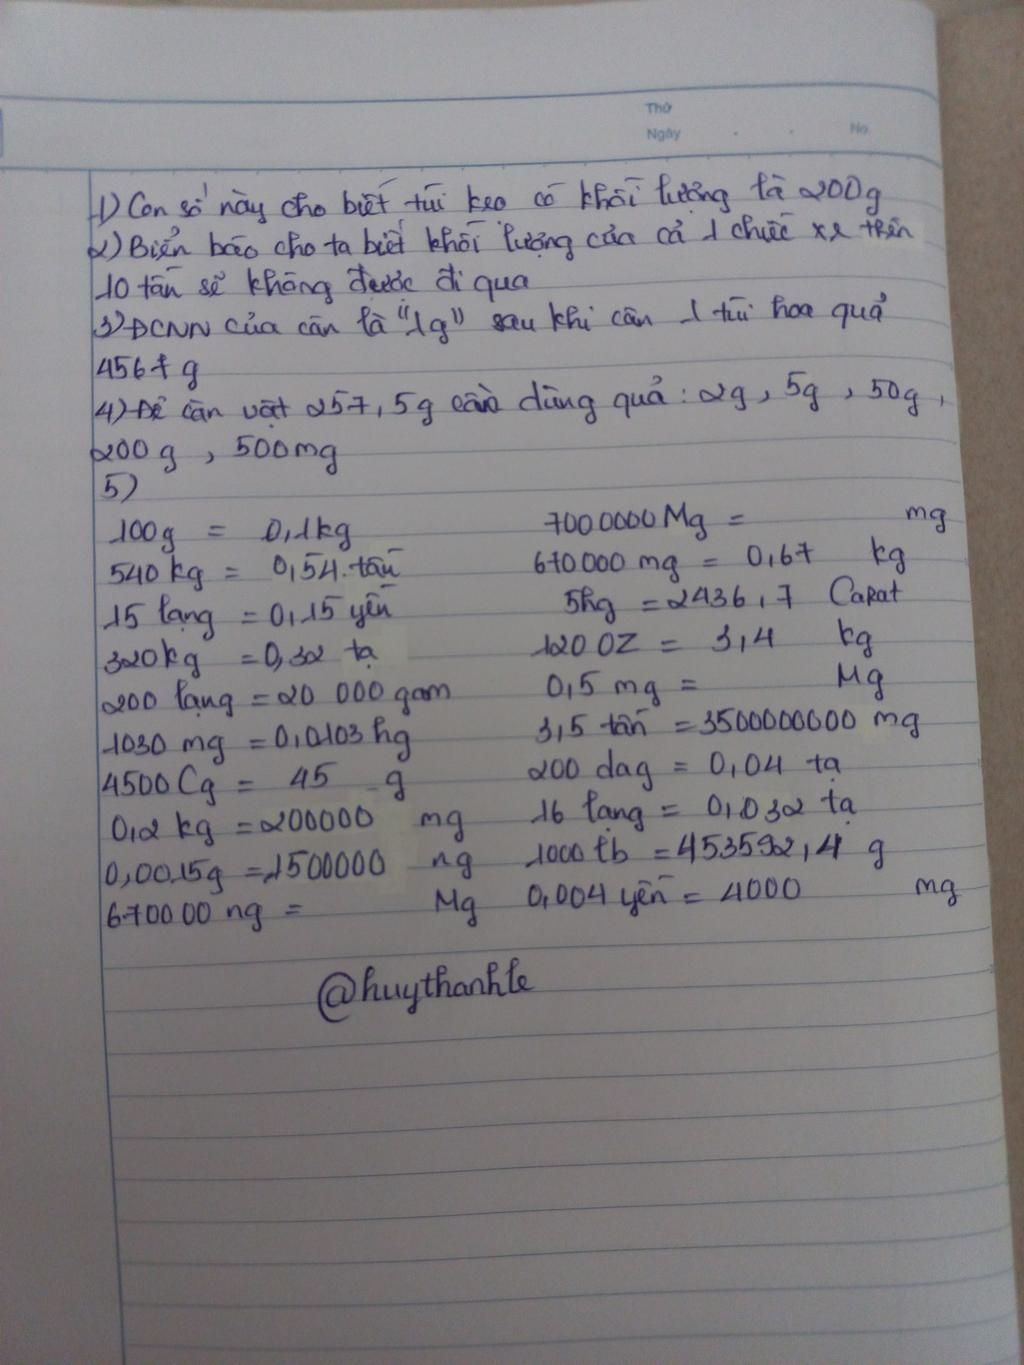 Thứ
Ngày No.
1) Con số này cho biết túi kẹo có khối lượng là 200g
2) Biển báo cho ta biết khối lượng của cả 1 chiếc xe trên
10 tấn sẽ không được đi qua
3) ĐCNN của cân là "1g" sau khi cân 1 túi hoa quả
4567 g
4) Để cân vật 257,5g cần dùng quả: 2g, 5g, 50g,
200g, 500mg
5)
100g = 0,1kg 7000000Mg = mg
540kg = 0,54 tấn 670000 mg = 0,67 kg
15 lạng = 0,15 yến 5hg = 2436,7 Carat
320kg = 0,32 tạ 120 OZ = 3,4 kg
200 lạng = 20 000 gam 0,5 mg = Mg
1030 mg = 0,0103 hg 3,5 tấn = 3500000000 mg
4500Cg = 45 g 200 dag = 0,04 tạ
0,2 kg = 200000 mg 16 lạng = 0,032 tạ
0,0015g = 1500000 ng 1000 lb = 453592,4 g
670000 ng = Mg 0,004 yến = 4000 mg
@huythanhle